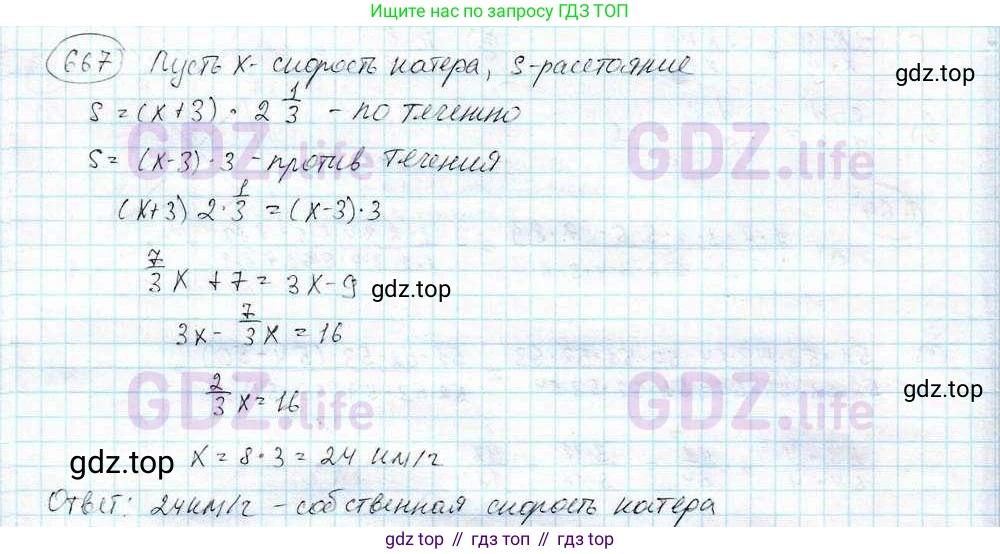 Ищите нас по запросу ГДЗ ТОП
667 Пусть x - скорость катера, S - расстояние
gdz.top
S = (x+3) · 2 1/3 - по течению
GDZ.life GDZ.life
S = (x-3) · 3 - против течения
(x+3) 2 · 1/3 = (x-3) · 3
7/3 x + 7 = 3x - 9 gdz.top
3x - 7/3 x = 16
GDZ.life GDZ.life
2/3 x = 16 gdz.top
gdz.top x = 8 · 3 = 24 км/г
Ответ: 24 км/г - собственная скорость катера
gdz.top // гдз.топ // гдз.top